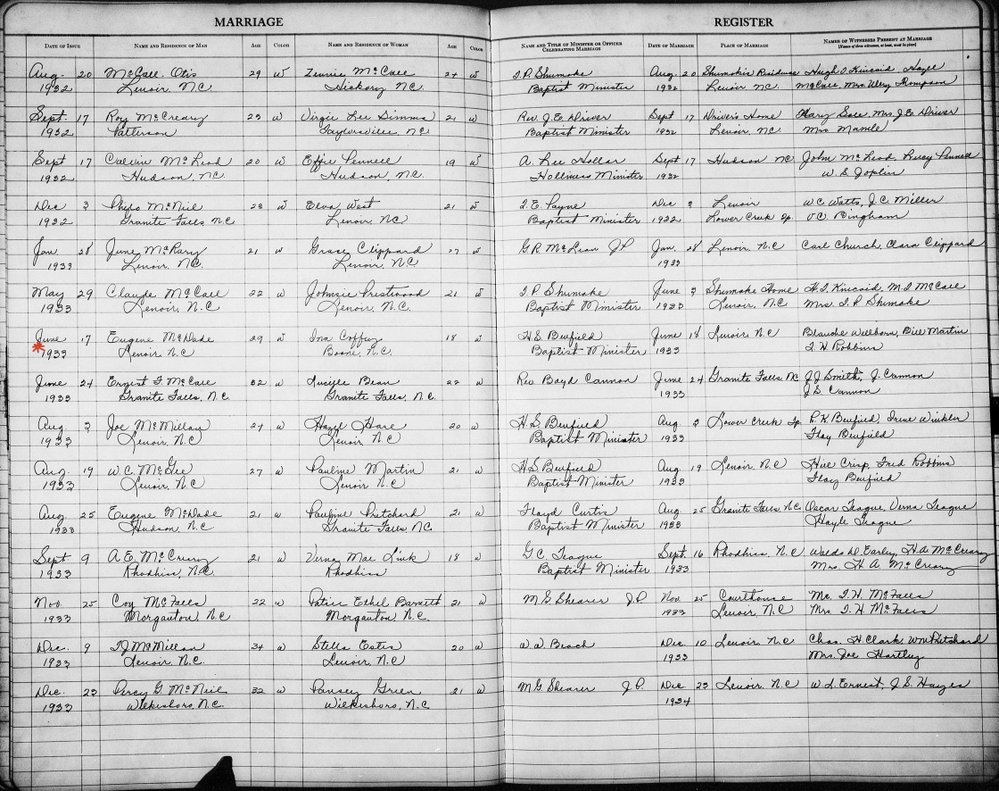 MARRIAGE REGISTER
DATE OF ISSUE NAME AND RESIDENCE OF MAN AGE COLOR NAME AND RESIDENCE OF WOMAN AGE COLOR NAME AND TITLE OF MINISTER OR OFFICER CELEBRATING MARRIAGE DATE OF MARRIAGE PLACE OF MARRIAGE NAMES OF WITNESSES PRESENT AT MARRIAGE
Aug. 20 McCall, Otis 29 W McCall 24 W Shumake Aug. 20 Hugh Kincaid,
1932 Lenoir, N.C. Hickory, N.C. Baptist Minister 1932 Lenoir N.C. McCall, Mrs. Thompson
Sept. 17 Roy McCreary 23 W Virgie Lee Simms 21 W Rev J.E. Driver Sept 17 Driver's Home Mary Mrs. J.E. Driver
1932 Patterson Taylorsville, N.C. Baptist Minister 1932 Lenoir, N.C. Mrs
Sept 17 Calvin McLeod 20 W Effie Pennell 19 W A. Lee Hollar Sept 17 Hudson N.C. John McLeod, Pennell
1932 Hudson, N.C. Hudson, N.C. Holliness Minister 1932 W.S. Joplin
Dec 3 McNeil 28 W Elva West 21 W Payne Dec 3 Lenoir W.C. Watts, J.C. Miller
1932 Granite Falls N.C. Lenoir, N.C. Baptist Minister 1932 Lower Creek Tp. Bingham
Jan 28 June McRary 21 W Grace Clippard 27 W G.R. McLean J.P. Jan. 28 Lenoir, N.C. Carl Church, Clara Clippard
1933 Lenoir, N.C. Lenoir, N.C. 1933
May 29 Claude McCall 22 W Johnzie Prestwood 21 W Shumake June 3 Shumake Home Kincaid McCall
1933 Lenoir, N.C. Lenoir, N.C. Baptist Minister 1933 Lenoir, N.C. Mrs. Shumake
June 17 Eugene McDade 29 W Ina Coffey 18 W H.S. Benfield June Lenoir, N.C. Blanche Wellborn, Bill Martin
1933 Lenoir N.C. Boone, N.C. Baptist Minister 1933 Robbins
June 24 Ernest McCall 32 W Lucille Bean 22 W Rev Boyd Cannon June 24 Granite Falls N.C. J.J. Smith, J. Cannon
1933 Granite Falls, N.C. Granite Falls, N.C. 1933 J.S. Cannon
Aug 3 Joe McMillan 24 W Hazel Hare 20 W H.S. Benfield Aug 3 Lower Creek Tp. Benfield, Irene Winkler
1933 Lenoir, N.C. Lenoir N.C. Baptist Minister 1933 Benfield
Aug. 19 W.C. McGee 27 W Pauline Martin 21 W H.S. Benfield Aug 19 Lenoir N.C. Crisp, Fred Robbins
1933 Lenoir, N.C. Lenoir N.C. Baptist Minister 1933 Benfield
Aug 25 Eugene McDade 21 W Pauline Pritchard 21 W Floyd Curtis Aug 25 Granite Falls N.C. Oscar Teague, Verna Teague
1933 Hudson N.C. Granite Falls N.C. Baptist Minister 1933 Hayle Teague
Sept. 9 A.E. McCreary 21 W Verna Mae Link 18 W G.C. Teague Sept. 16 Rhodhiss, N.C. Earley, H.A. McCreary
1933 Rhodhiss, N.C. Rhodhiss Baptist Minister 1933 Mrs. H.A. McCreary
Nov 25 Coy McFalls 22 W Ethel Barnett 21 W M.G. Shearer J.P. Nov 25 Courthouse Mr. McFalls
1933 Morganton N.C. Morganton N.C. 1933 Lenoir, N.C. Mrs McFalls
Dec. 9 McMillan 34 W Stella Estes 20 W W.W. Beach Dec. 10 Lenoir, N.C. Chas. H. Clark, Wm Pritchard
1933 Lenoir N.C. Lenoir, N.C. 1933 Mrs. Joe Hartley
Dec. 23 Percy G. McNeil 32 W Pansey Green 21 W M.G. Shearer J.P. Dec 23 Lenoir, N.C. W.L. Ernest, J.S. Hayes
1933 Wilkesboro, N.C. Wilkesboro, N.C. 1934